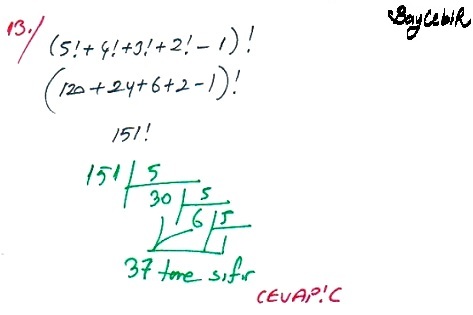 BayCebiR
13./ (5!+4!+3!+2!-1)!
(120+24+6+2-1)!
151!
151 5
30 5
6 5
1
37 tane sıfır
CEVAP:C